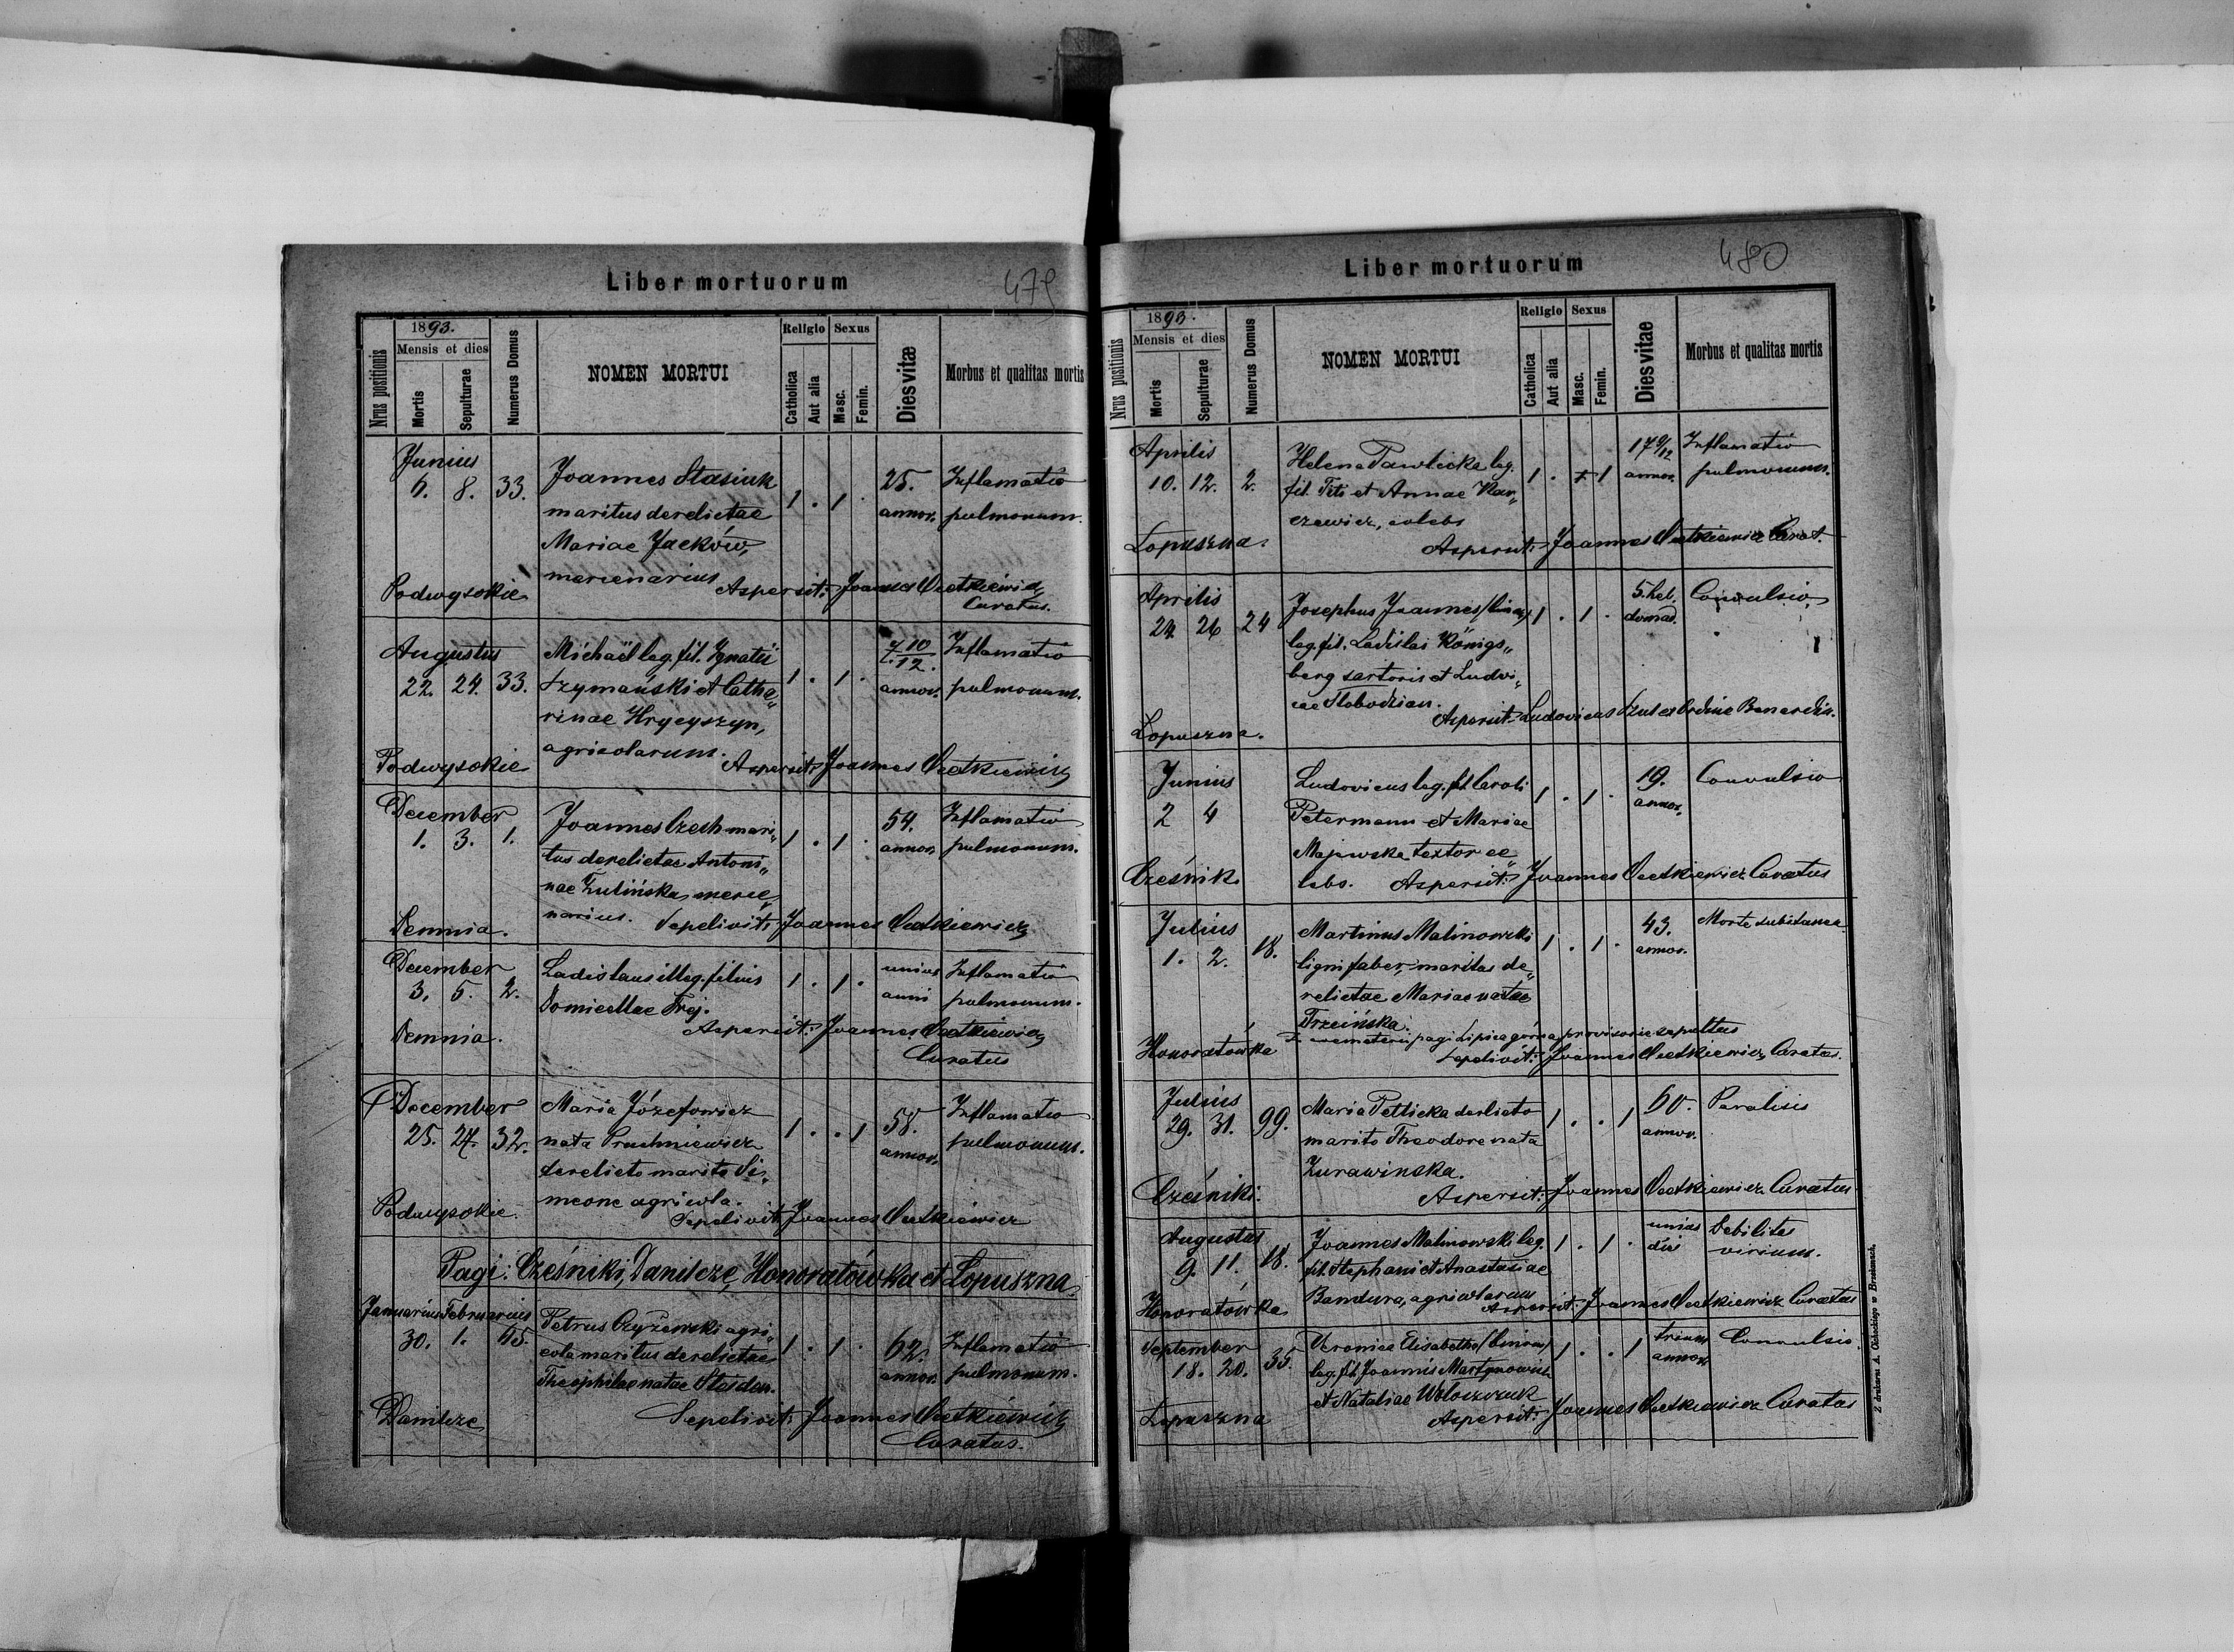 Liber mortuorum
479
Nrus positionis
1893.
Mensis et dies
Mortis
Sepulturae
Numerus Domus
NOMEN MORTUI
Religio
Catholica
Aut alia
Sexus
Masc.
Femin.
Dies vitæ
Morbus et qualitas mortis
Junius
6. 8. 33. Joannes Stasiuk 1 . 1 . 25. Inflamatio
maritus derelictae annor. pulmonum.
Mariae Jacków,
mercenarius
Podwysokie Aspersit: Joannes
Curatus.
Augustus
22. 24. 33. Michaël leg. fil. Ignatii 1 . 1 . 7 10/12. Inflamatio
Szymański et Catha„ annor. pulmonum.
rinae Hrycyszyn,
agricolarum.
Podwysokie Aspersit: Joannes
December
1. 3. 1. Joannes Czech mari„ 1 . 1 . 54. Inflamatio
tus derelictae Antoni„ annor. pulmonum.
nae Zulińska, merce„
narius.
Demnia. Sepelivit: Joannes
December
3. 5. 2. Ladislaus illeg. filius 1 . 1 . unius Inflamatio
Domicellae Frej. anni pulmonum.
Demnia. Aspersit: Joannes
Curatus
December
25. 27. 32. Maria Józefowicz 1 . . 1 58. Inflamatio
nata Pruchniewicz annor. pulmonum.
derelicto marito Si„
meone agricola.
Podwysokie. Sepelivit Joannes
Pagi: Cześniki, Danilcze, Honoratówka et Lopuszna.
Januarius Februarius
30. 1. 65. Petrus Czyżewski agri„ 1 . 1 . 62. Inflamatio
cola maritus derelictae annor. pulmonum.
Theophilae natae
Danilcze Sepelivit: Joannes
Curatus.
Liber mortuorum
480
Nrus positionis
1893.
Mensis et dies
Mortis
Sepulturae
Numerus Domus
NOMEN MORTUI
Religio
Catholica
Aut alia
Sexus
Masc.
Femin.
Dies vitae
Morbus et qualitas mortis
Aprilis
10. 12. 2. Helena Pawlicka leg. 1 . 1 17 9/12 Inflamatio
fil. Titi et Annae Kar„ annor. pulmonum.
czewicz, celebs
Lopuszna. Aspersit: Joannes Curat.
Aprilis
24. 26 24 Josephus Joannes 1 . 1 . 5. heb. Convulsio
leg. fil. Ladislai Königs„ domad.
berg sartoris et Ludovi„
cae Slobodzian.
Lopuszna. Aspersit: Ludovicus ex Ordine Bernardin.
Junius
2 4 Ludovicus leg. fil. Caroli 1 . 1 . 19. Convulsio
Petermann et Mariae annor.
Majewska textor ce„
lebs.
Cześniki Aspersit: Joannes Curatus
Julius
1. 2. 18. Martinus Malinowski 1 . 1 . 43. Morte subitanea
lignifaber, maritus de„ annor.
relictae Mariae natae
Trzcińska.
In coemeterii pagi Lipica górna provisorie sepultus
Honoratówka Sepelivit: Joannes Curatus.
Julius
29. 31. 99. Maria Petlicka derlicto 1 . . 1 60. Paralisis
marito Theodore nata annor.
Zurawinska.
Cześniki. Aspersit: Joannes Curatus
Augustus
9. 11. 18. Joannes Malinowski leg. 1 . 1 . unius Debilitas
fil. Stephani et Anastasiae diei virium.
Bandura, agricolarum
Honoratówka Aspersit: Joannes Curatus
September
18. 20. 35. Veronica Elisabetha (binom) 1 . . 1 trium Convulsio.
leg. fil. Joannis Martynowicz annor.
et Nataliae Woloszczuk
Lopuszna Aspersit: Joannes Curatus